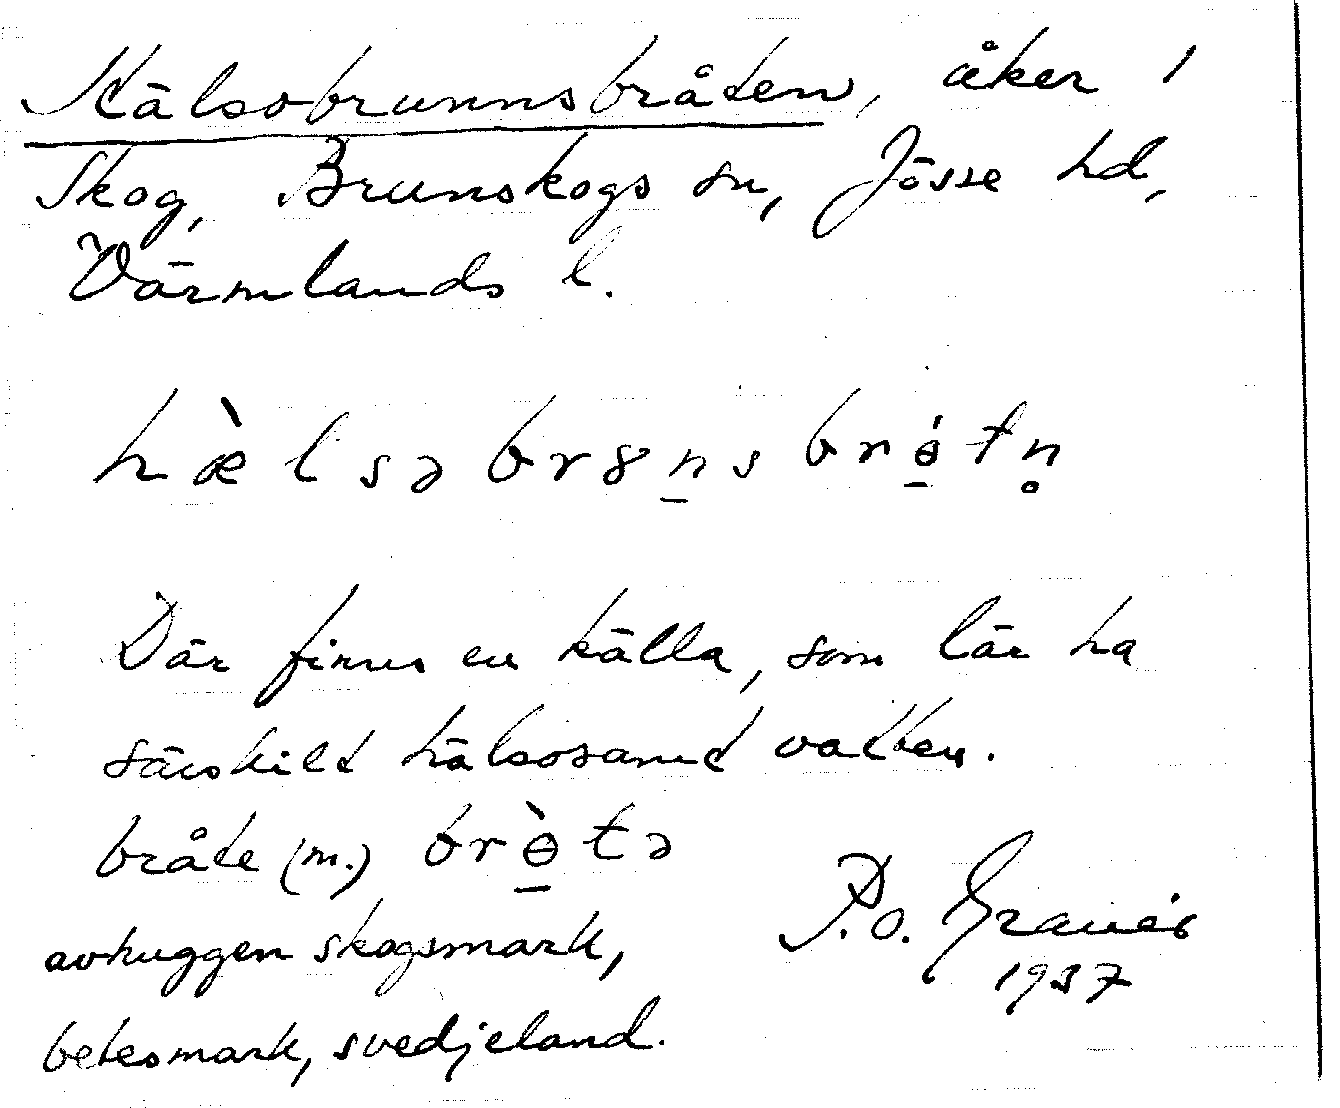 Hälsobrunnsbråten, åker i
Skog, Brunskogs sn, Jösse hd,
Värmlands l.
hæ̀lsə br8n̠s brɵ̠́tn̥
Där finns en källa, som lär ha
särskilt hälsosamt vatten.
bråte (m.) brɵ̠̀tə
avhuggen skogsmark,
betesmark, svedjeland.
P. O.
1937